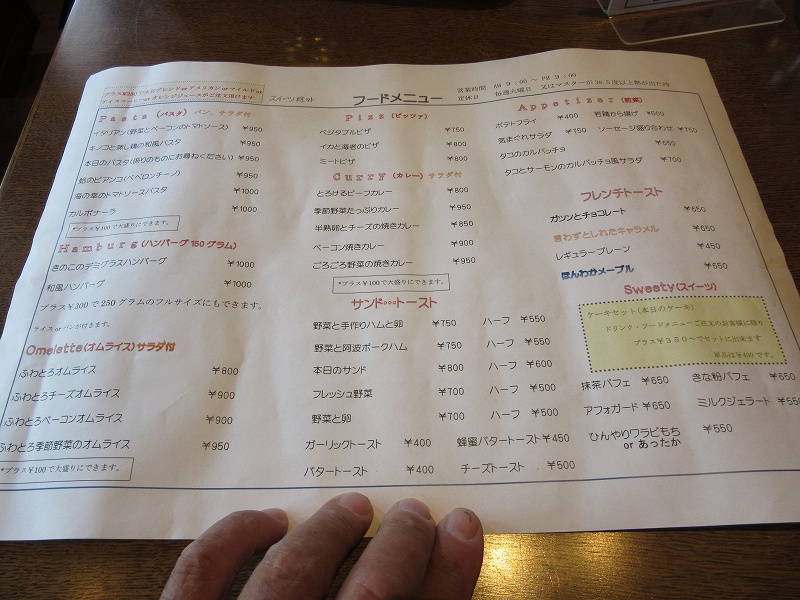 プラス¥350で本日ブレンドorアメリカンorマイルドor
アイスコーヒーorオレンジジュースがご注文頂けます
スイーツ除外
フードメニュー
営業時間 AM 9:00 ~ PM 9:00
定休日 毎週火曜日 又はマスターが38.5度以上熱が出た時
Pasta (パスタ) パン、サラダ付
イタリアン(野菜とベーコンのトマトソース) ¥950
キノコと蒸し鶏の和風パスタ ¥950
本日のパスタ(係りのものにお尋ねください) ¥950
鮭のビアンコ(ペペロンチーノ) ¥950
海の幸のトマトソースパスタ ¥1000
カルボナーラ ¥1000
*プラス¥100で大盛りにできます。
Hamburg (ハンバーグ150グラム)
きのこのデミグラスハンバーグ ¥1000
和風ハンバーグ ¥1000
プラス¥300で250グラムのフルサイズにもできます。
ライスorパンが付きます。
Omelette(オムライス)サラダ付
ふわとろオムライス ¥800
ふわとろチーズオムライス ¥900
ふわとろベーコンオムライス ¥900
ふわとろ季節野菜のオムライス ¥950
*プラス¥100で大盛りにできます。
Pizz (ピッツァ)
ベジタブルピザ ¥750
イカと海老のピザ ¥800
ミートピザ ¥800
Curry (カレー) サラダ付
とろけるビーフカレー ¥800
季節野菜たっぷりカレー ¥950
半熟卵とチーズの焼きカレー ¥850
ベーコン焼きカレー ¥900
ごろごろ野菜の焼きカレー ¥900
*プラス¥100で大盛りにできます。
サンド。。。トースト
野菜と手作りのハムと卵 ¥750 ハーフ ¥550
野菜と阿波ポークハム ¥750 ハーフ ¥550
本日のサンド ¥800 ハーフ ¥600
フレッシュ野菜 ¥700 ハーフ ¥500
野菜と卵 ¥700 ハーフ ¥500
ガーリックトースト ¥400 蜂蜜バタートースト¥450
バタートースト ¥400 チーズトースト ¥500
Appetizer (前菜)
ポテトフライ ¥400 若鶏から揚げ ¥500
気まぐれサラダ ¥750 ソーセージ盛り合わせ ¥750
タコのカルパッチョ ¥650
タコとサーモンのカルパッチョ風サラダ ¥700
フレンチトースト
ガツンとチョコレート ¥650
言わずとしれたキャラメル ¥650
レギュラープレーン ¥450
ほんわかメープル ¥650
Sweety (スイーツ)
ケーキセット(本日のケーキ)
ドリンク・フードメニューご注文のお客様に限り
プラス¥350~でセットに出来ます
単品は¥400です。
抹茶パフェ ¥650 きな粉パフェ ¥650
アフォガード ¥650 ミルクジェラート ¥550
ひんやりワラビもち ¥550
or あったか